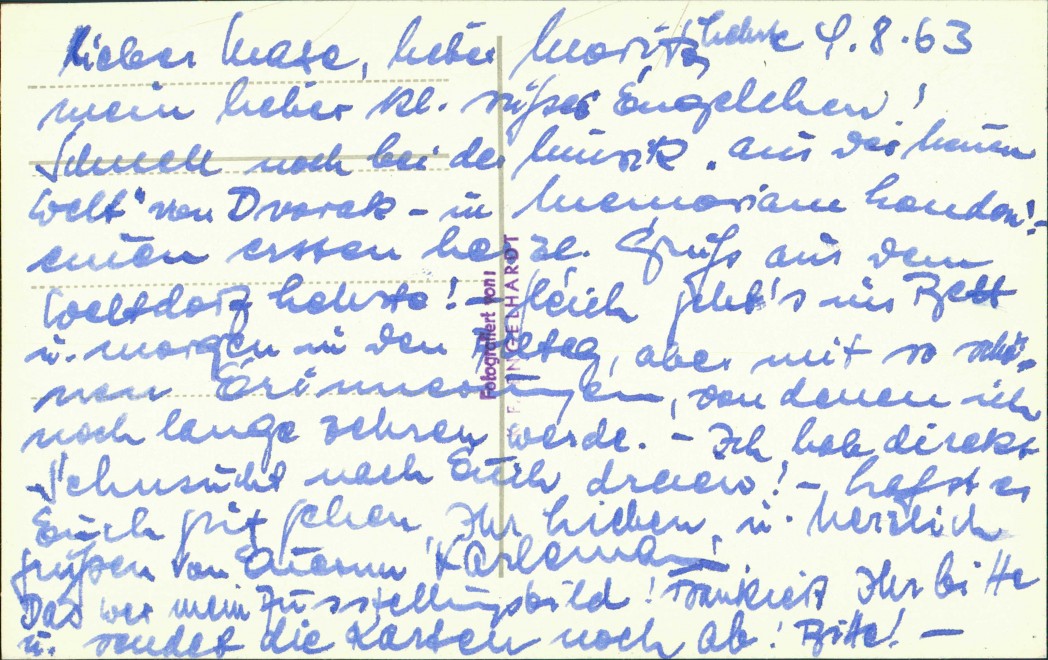 Lieber Maxe, lieber Moritz, Lehrte 4.8.63
mein lieber kl. süßes Engelchen!
Schnell noch bei der Musik „aus der neuen
Welt" von Dvorak - in Memoriam London! -
einen ersten herzl. Gruß aus dem
Weltdorf Lehrte! - Gleich geht's ins Bett
u. morgen in den Alltag, aber mit so schö-
nen Erinnerungen, von denen ich
noch lange zehren werde. - Ich hab direkt
Sehnsucht nach Euch dreien! - Laßt es
Euch gut gehen, Ihr Lieben, u. herzlich
grüßen von Eurem Karlemann
Das war mein Ausstellungsbild! Frankiert Ihr bitte
u. sendet die Karten noch ab! Bitte! -
Fotografiert von
ENGELHARDT